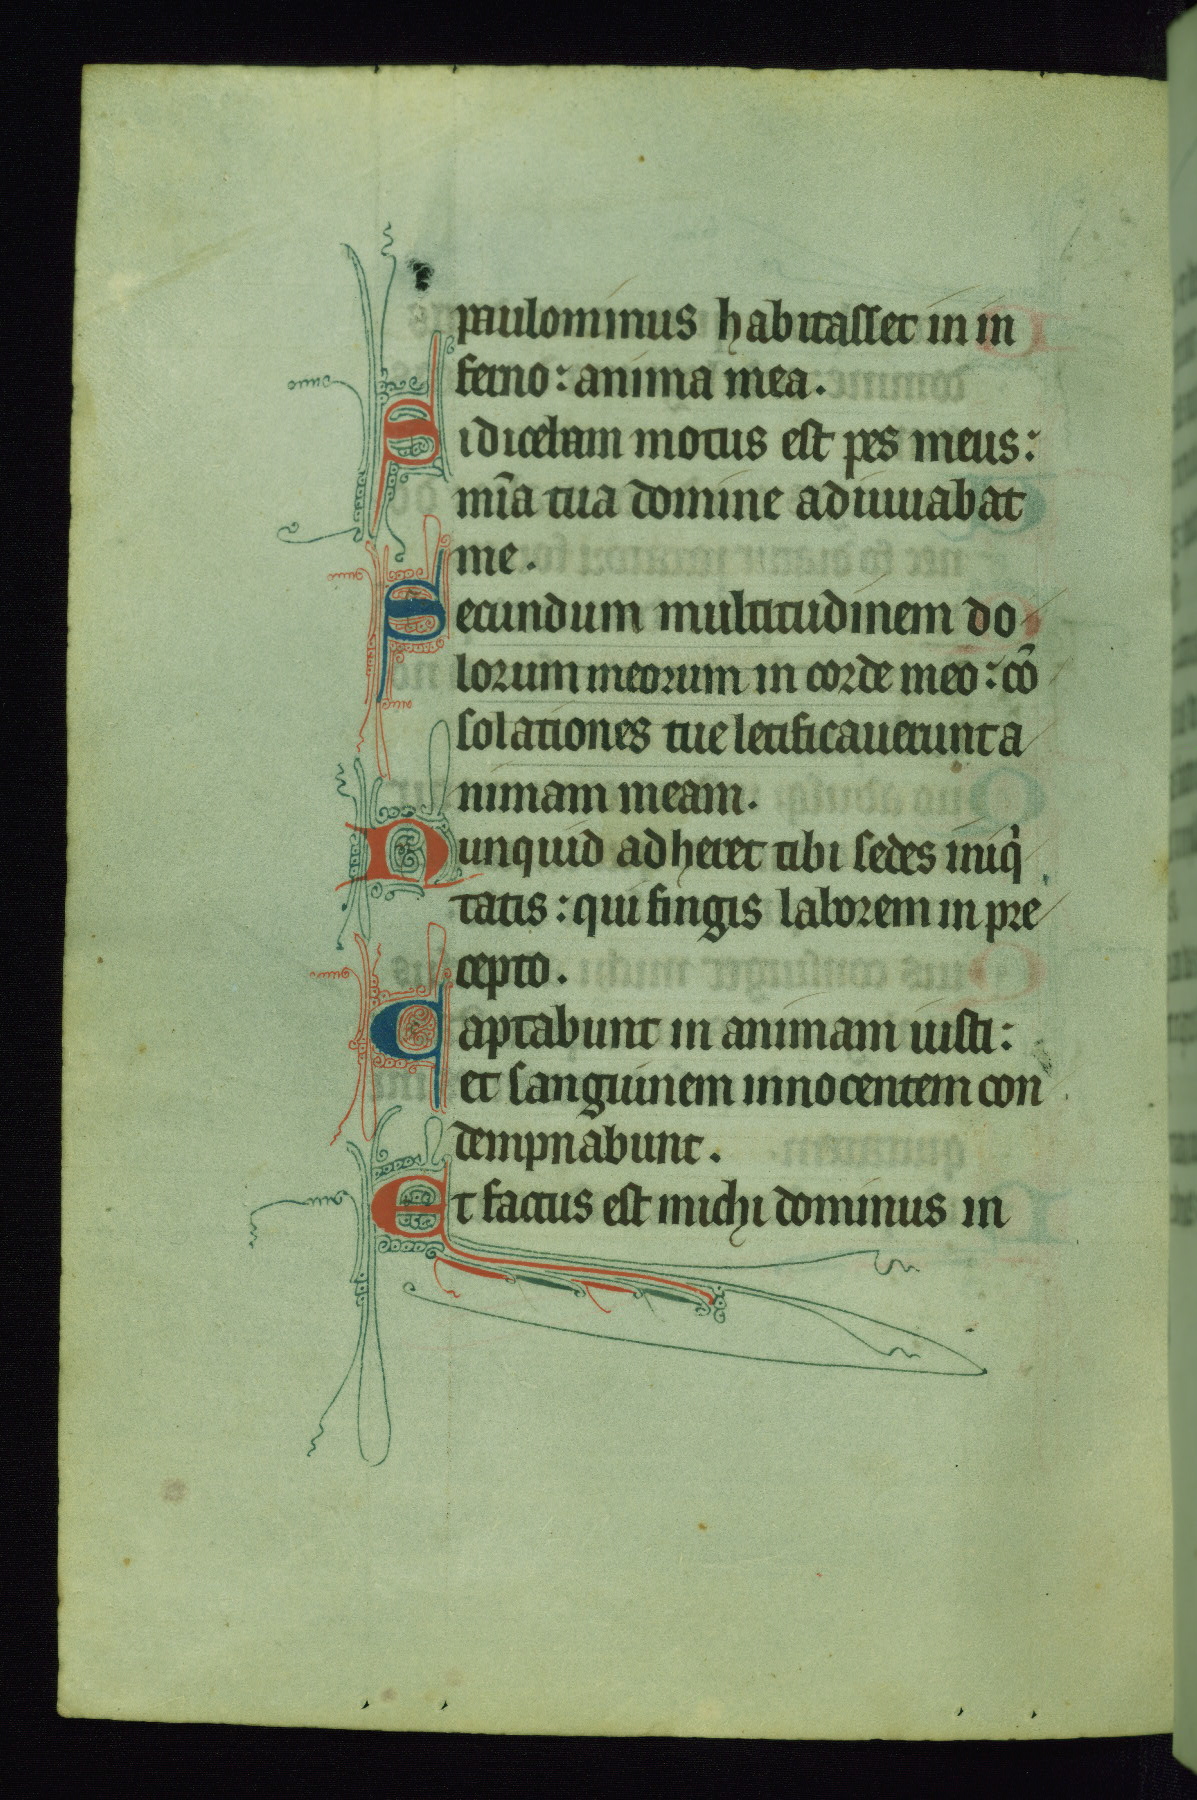 paulominus habitasset in in
ferno : anima mea .
Si dicebam motus est pes meus :
mīa tua domine adiuuabat
me .
Secundum multitudinem do
lorum meorum in corde meo : cō
solationes tue letificauerunt a
nimam meam .
Nunquid adheret tibi sedes iniqi
tatis : qui fingis laborem in pre
cepto .
Captabunt in animam iusti :
et sanguinem innocentem con
dempnabunt .
Et factus est michi dominus in